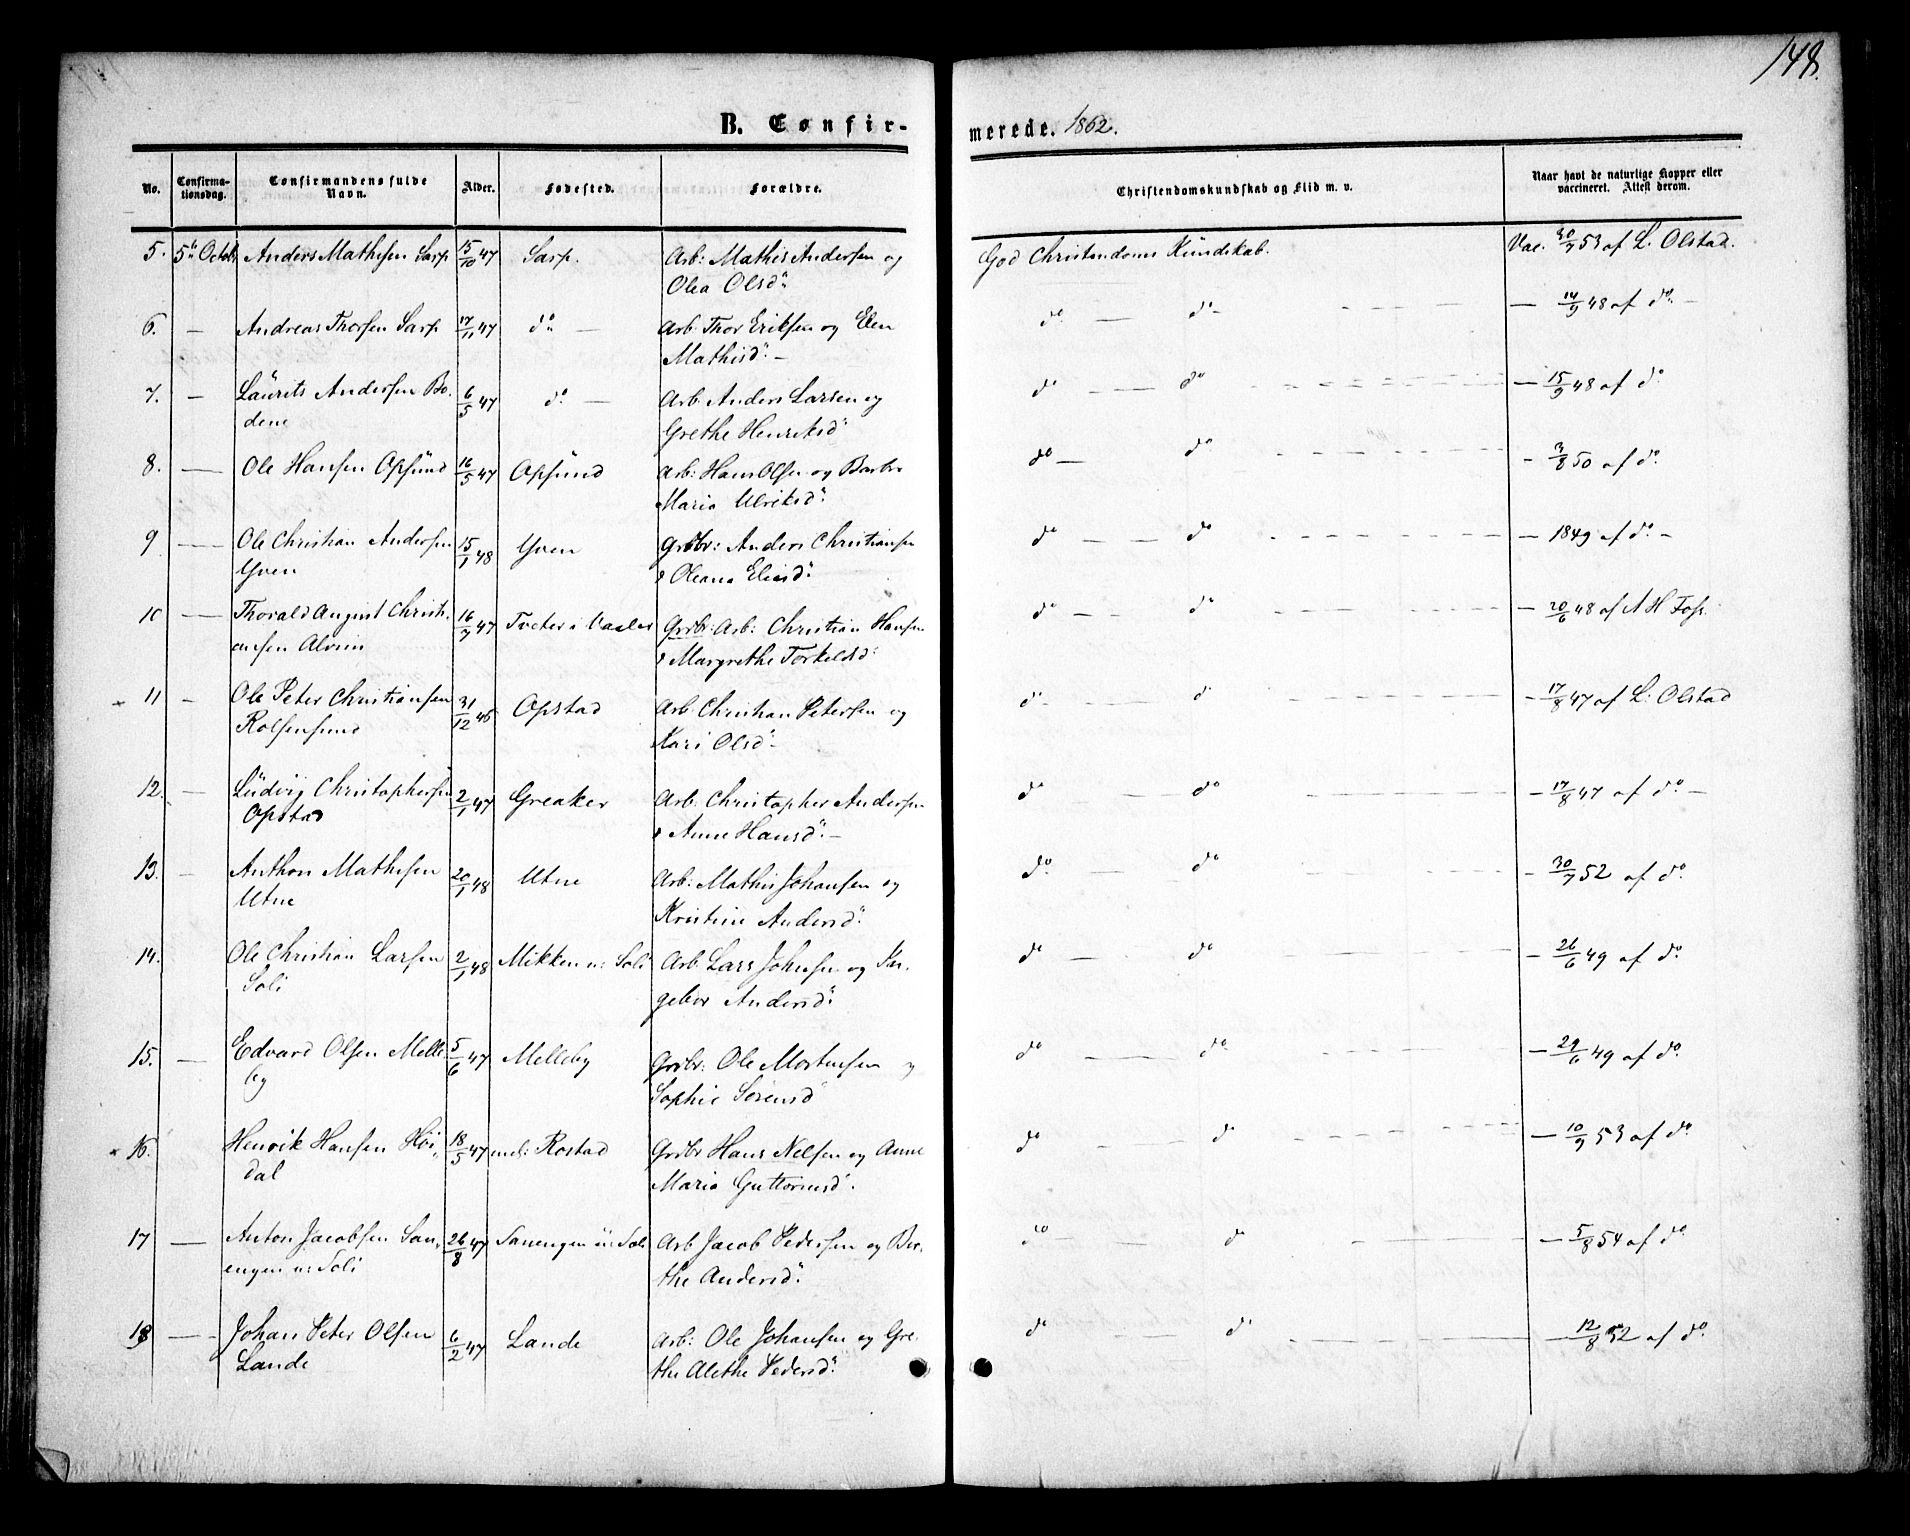 148.
B. Confir-
merede. 1862.
No.
Confirma-
tionsdag.
Confirmandens fulde
Navn.
Alder.
Fødested.
Forældre.
Christendomskundskab og Flid m. v.
Naar havt de naturlige Kopper eller
vaccineret. Attest derom.
5. 5te Octob. Anders Mathisen Sarp. 15/10 47 Sarp. Arb: Mathis Andersen og God Christendoms Kundskab. Vac. 30/7 53 af L. Olstad.
Olea Olsd:
6. — Andreas Thorsen Sarp 17/11 47 do — Arb: Thor Eriksen og Elen do — do — 14/9 48 af do —
Mathisd: —
7. — Laurits Andersen Bo- 6/5 47 do — Arb: Anders Larsen og do — do — 15/9 48 af do
dene Grethe Henriksd:
8. — Ole Hansen Opsund 16/5 47 Opsund Arb: Hans Olsen og Barbr do — do - 3/8 50 af do
Maria Ulriksd:
9 — Ole Christian Andersen 15/1 48 Yven Grdbr: Anders Christiansen do — do — 1849 af do —
Yven & Oleana Eliasd:
10 — Thorald August Christi- 16/7 47 Tveter i Vaaler Grdbr: Arb: Christian Hansen do — do — 20/6 48 af A H Foss
ansen Alvim & Margrethe Torkelsd:
× 11 — Ole Peter Christiansen 31/12 46 Opstad Arb: Christian Petersen og do — do — 17/8 47 af L: Olstad
Rolfsøsund Kari Olsd: —
12. — Ludvig Christophersen 2/1 47 Greaker Arb: Christopher Andersen do — do — 17/8 47 af do —
Opstad & Anne Hansd: —
13. — Anthon Mathisen 20/1 48 Utne Arb: Mathis Johansen og do — do — 30/7 52 af do
Utne Kristine Andersd:
14. — Ole Christian Larsen 2/1 48 Mikken u: Soli Arb: Lars Johnsen og In- do — do — 26/6 49 af do
Soli geborg Andersd:
15. — Edvard Olsen Melle- 5/6 47 Melleby Grdbr: Ole Mortensen og do — do — 29/6 49 af do
by Sophie Sørensd
× 16. Henrik Hansen Høi- 18/5 47 und: Rostad Grdbr Hans Nelsen og Anne do — do — 10/9 53 af do
dal Maria Guttormsd:
17 — Anton Jacobsen San- 26/8 47 Sanengen u: Soli Arb: Jacob Pedersen og Ber- do — do — 5/8 54 af do
engen u: Soli the Andersd:
18 — Johan Peter Olsen 6/2 47 Lande Arb: Ole Johansen og Gre- do — do — 12/8 52 af do
Lande the Alethe Pedersd: